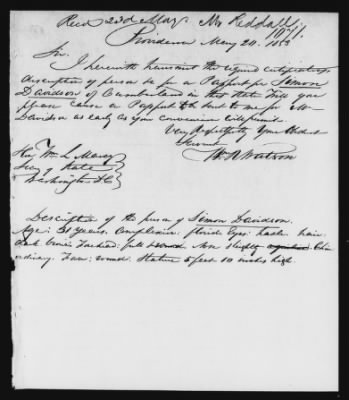 Recd 23d May. Mr Reddall
1071.
Providence May 20. 1853
Sir.
I herewith transmit the required certificate &
description of person to for a Passport for Simon
Davidson of Cumberland in this State. Will you
please cause a Passport to be sent to me for Mr
Davidson as early as your convenience will permit.
Very Respectfully Your Obedient
Servant
W R Watson
Hon Wm L Marcy
Secy of State
Washington D C
Description of the person of Simon Davidson.
Age: 31 years. Complexion: florid. Eyes: hazle. hair:
dark brown. Forehead: full. Nose slightly Chin
ordinary. Face: round. Stature 5 feet 10 inches high.